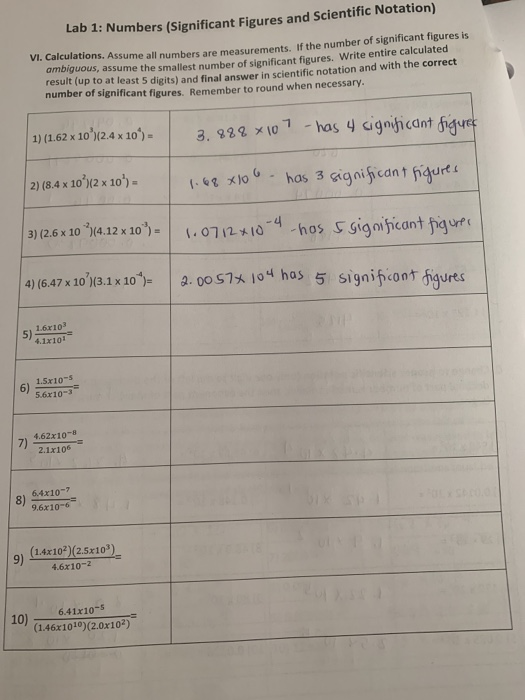 Lab 1: Numbers (Significant Figures and Scientific Notation)
VI. Calculations. Assume all numbers are measurements. If the number of significant figures is
ambiguous, assume the smallest number of significant figures. Write entire calculated
result (up to at least 5 digits) and final answer in scientific notation and with the correct
number of significant figures. Remember to round when necessary.
1) (1.62 x 10³)(2.4 x 10⁴) = 3.888 x 10⁷ - has 4 significant figures
2) (8.4 x 10²)(2 x 10¹) = 1.68 x10⁶ - has 3 significant figures
3) (2.6 x 10⁻²)(4.12 x 10⁻³) = 1.0712x10⁻⁴ -has 5 significant figures
4) (6.47 x 10⁷)(3.1 x 10⁻⁴)= 2.0057x 10⁴ has 5 significant figures
5) 1.6x10³/4.1x10¹=
6) 1.5x10⁻⁵/5.6x10⁻³=
7) 4.62x10⁻⁸/2.1x10⁶=
8) 6.4x10⁻⁷/9.6x10⁻⁶=
9) (1.4x10²)(2.5x10³)/4.6x10⁻²=
10) 6.41x10⁻⁵/(1.46x10¹⁰)(2.0x10²)=